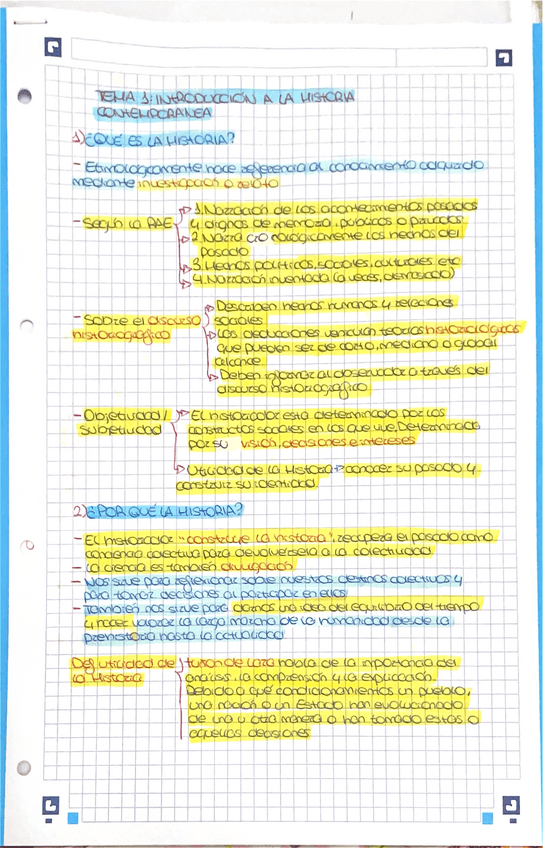 TEMA 1: INTRODUCCIÓN A LA HISTORIA
CONTEMPORANEA
1) ¿QUÉ ES LA HISTORIA?
- Etimologicamente hace referencia al conocimiento adquirido
mediante investigación o relato
- Según la RAE
1. Narración de los acontecimientos pasados
y dignos de memoria, públicos o privados
2. Narra cronológicamente los hechos del
pasado
3. Hechos políticos, sociales, culturales, etc
4. Narración inventada (a veces, demasiado)
- Sobre el discurso
historiográfico
Describen hechos humanos y relaciones
sociales
Las deducciones vehiculan teorías historiológicas
que pueden ser de corto, mediano o global
alcance
Deben informar al observador a través del
discurso historiográfico
- Objetividad /
subjetividad
El historiador está determinado por los
constructos sociales en los que vive. Determinado
por su visión, decisiones e intereses
Utilidad de la Historia → conocer su pasado y
construir su identidad
2) ¿POR QUÉ LA HISTORIA?
- El historiador "construye la historia", recupera el pasado como
conciencia colectiva para devolversela a la colectividad
- La ciencia es también divulgación
- Nos sirve para reflexionar sobre nuestros destinos colectivos y
para tomar decisiones al participar en ellos
- También nos sirve para darnos una idea del equilibrio del tiempo
y hacer valorar la larga marcha de la humanidad desde la
prehistoria hasta la actualidad
Def utilidad de
la Historia
Tuñón de Lara habla de la importancia del
análisis, la comprensión y la explicación.
Debido a qué condicionamientos un pueblo,
una nación o un Estado han evolucionado
de una u otra manera o han tomado estas o
aquellas decisiones